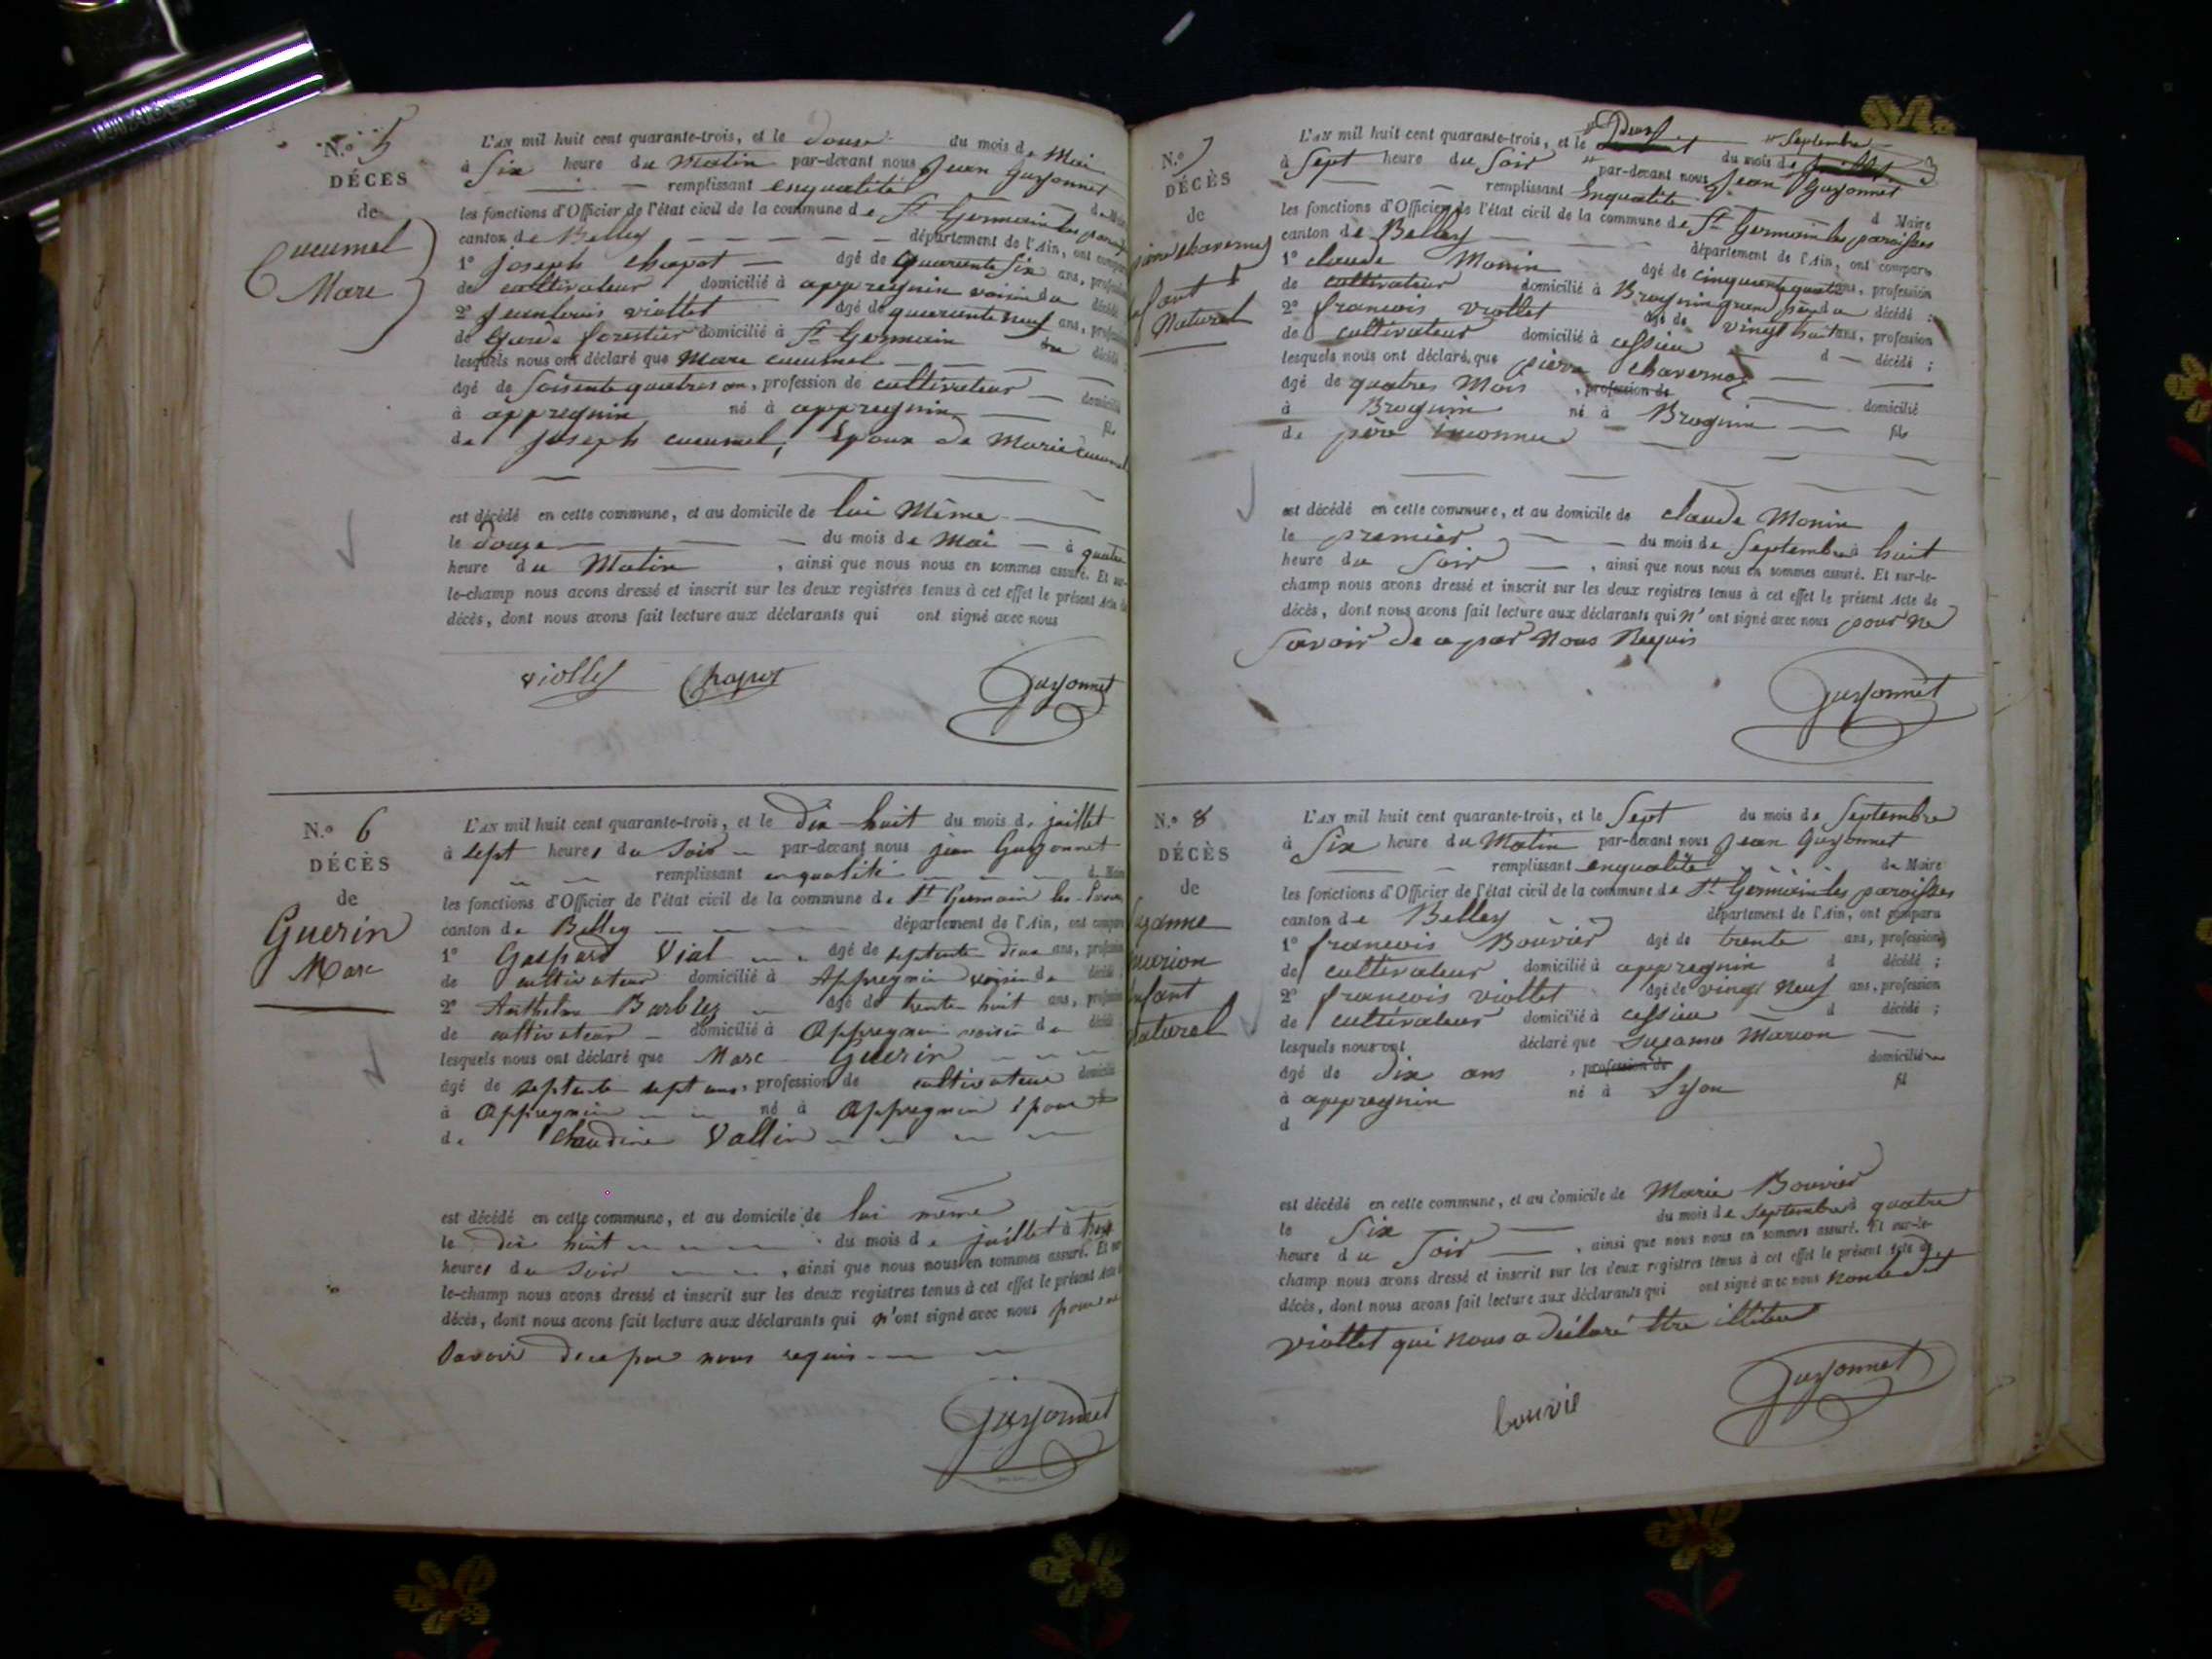 N.º 5
DÉCÈS
de
Cucumel
Marc
L'AN mil huit cent quarante-trois, et le douze du mois de Mai
à Six heure du Matin par-devant nous Jean Guyonnet
remplissant enqualité de Maire
les fonctions d'Officier de l'état civil de la commune de St Germain les parois
canton de Belley département de l'Ain, ont comparu
1º Joseph Chapot âgé de quarante Six ans, profession
de cultivateur domicilié à appregnin voisin du décédé
2º Jeanlouis viollet âgé de quarante neuf ans, profession
de Garde forestier domicilié à St Germain du décédé ;
lesquels nous ont déclaré que Marc cucumel
âgé de Soisente quatres an, profession de cultivateur domicilié
à appregnin né à appregnin fils
de Joseph cucumel, Epoux de Marie cucumel
est décédé en cette commune, et au domicile de lui Même
le douze du mois de Mai à quatre
heure du Matin , ainsi que nous nous en sommes assuré. Et sur-
le-champ nous avons dressé et inscrit sur les deux registres tenus à cet effet le présent Acte de
décès, dont nous avons fait lecture aux déclarants qui ont signé avec nous
viollet Chapot Guyonnet
N.º 6
DÉCÈS
de
Guerin
Marc
L'AN mil huit cent quarante-trois, et le dix-huit du mois de juillet
à sept heures du Soir par-devant nous jean Guyonnet
remplissant enqualité de Maire
les fonctions d'Officier de l'état civil de la commune de St Germain les Parois
canton de Belley département de l'Ain, ont comparu
1º Gaspard Vial âgé de septante deux ans, profession
de cultivateur domicilié à Appregnin voisin du décédé ;
2º Anthelme Barblez âgé de trente huit ans, profession
de cultivateur domicilié à Appregnin voisin du décédé
lesquels nous ont déclaré que Marc Guerin
âgé de septante sept ans, profession de cultivateur domicilié
à Appregnin né à Appregnin époux
de Claudine Vallin
est décédé en cette commune, et au domicile de lui même
le dix huit du mois de juillet à trois
heures du Soir , ainsi que nous nous en sommes assuré. Et sur-
le-champ nous avons dressé et inscrit sur les deux registres tenus à cet effet le présent Acte
décès, dont nous avons fait lecture aux déclarants qui n'ont signé avec nous pour ne
Savoir de ce par nous requis
Guyonnet
N.º 7
DÉCÈS
de
pierre chavernoz
enfant
Naturel
L'AN mil huit cent quarante-trois, et le Deux du mois de Septembre
à Sept heure du Soir par-devant nous Jean Guyonnet
remplissant Enqualité d Maire
les fonctions d'Officier de l'état civil de la commune de St Germain les paroisses
canton de Belley département de l'Ain, ont comparu
1º claude Monin âgé de cinquante quatre ans, profession
de cultivateur domicilié à Brognin grand père du décédé ;
2º francois viollet âgé de vingt huit ans, profession
de cultivateur domicilié à cessieu d décédé ;
lesquels nous ont déclaré que pierre chavernoz
âgé de quatres Mois , profession de domicilié
à Brognin né à Brognin fils
de père inconnu
est décédé en cette commune, et au domicile de claude Monin
le premier du mois de Septembre à huit
heure du Soir , ainsi que nous nous en sommes assuré. Et sur-le-
champ nous avons dressé et inscrit sur les deux registres tenus à cet effet le présent Acte de
décès, dont nous avons fait lecture aux déclarants qui n'ont signé avec nous pour ne
Savoir de ce par Nous Requis
Guyonnet
N.º 8
DÉCÈS
de
Suzanne
marion
enfant
Naturel
L'AN mil huit cent quarante-trois, et le Sept du mois de Septembre
à Six heure du Matin par-devant nous Jean Guyonnet
remplissant enqualité de Maire
les fonctions d'Officier de l'état civil de la commune de St Germain les paroisses
canton de Belley département de l'Ain, ont comparu
1º francois Bouvier âgé de trente ans, profession
de cultivateur domicilié à appregnin d décédé ;
2º francois viollet âgé de vingt Neuf ans, profession
de cultivateur domicilié à cessieu d décédé ;
lesquels nous ont déclaré que Suzanne Marion
âgé de dix ans , profession de domicilié
à appregnin né à Lyon fil
d
est décédé en cette commune, et au domicile de Marie Bouvier
le Six du mois de Septembre à quatre
heure du Soir , ainsi que nous nous en sommes assuré. Et sur-le-
champ nous avons dressé et inscrit sur les deux registres tenus à cet effet le présent Acte de
décès, dont nous avons fait lecture aux déclarants qui ont signé avec nous non le dit
viollet qui nous a déclaré être illiteré
bouvié Guyonnet